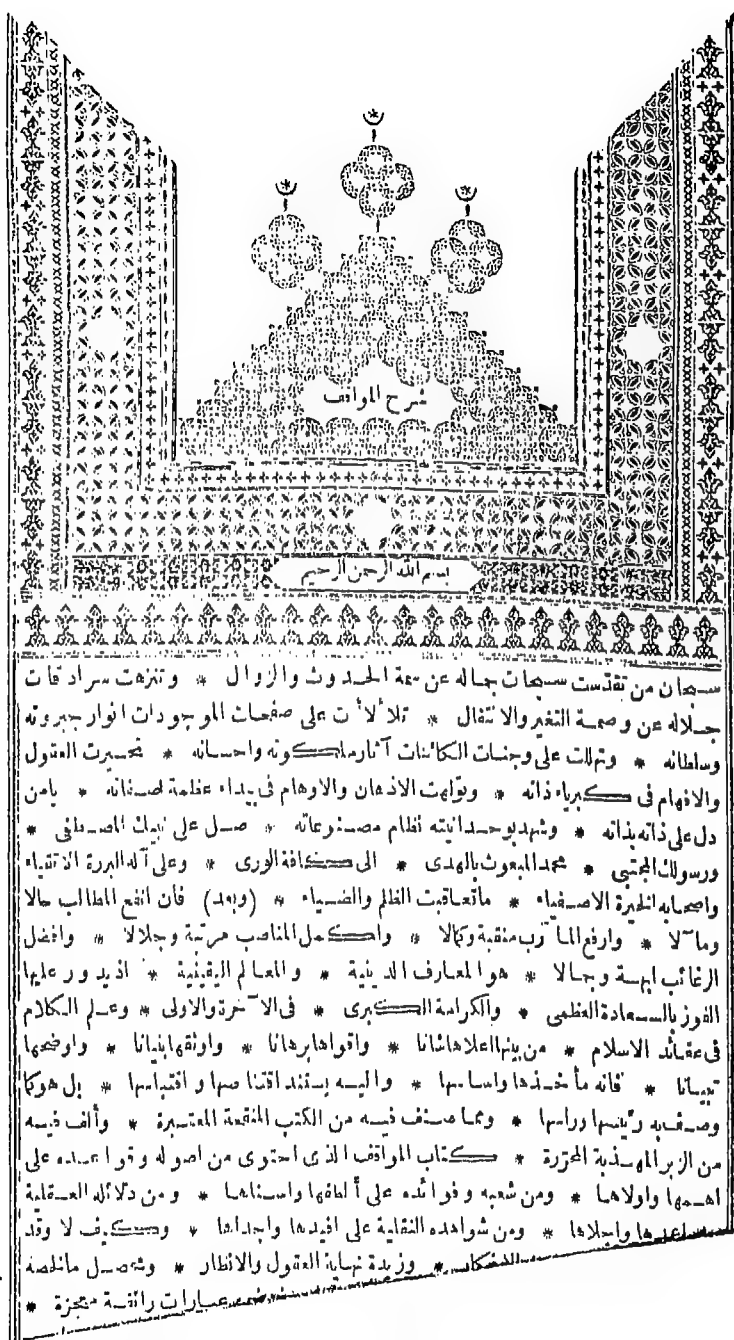 شرح المواقف
بسم الله الرحمن الرحيم
سبحان من تقدّست سبحات جماله عن سمة الحدوث والزوال * وتنزهت سرادقات
جلاله عن وصمة التغير والانتقال * تلألأت على صفحات الموجودات انوار جبروته
وسلطانه * وتهللت على وجنات الكائنات آثار ملكوته واحسانه * تحيرت العقول
والافهام فى كبرياء ذاته * وتولهت الاذهان والاوهام فى بيداء عظمة صفاته * يامن
دل على ذاته بذاته * وشهد بوحدانيته نظام مصنوعاته * صل على نبيك المصطفى *
ورسولك المجتبى * محمد المبعوث بالهدى * الى كافة الورى * وعلى آله البررة الاتقياء
واصحابه الخيرة الاصفياء * ماتعاقبت الظلم والضياء * (وبعد) فان انفع المطالب حالا
ومآلا * وارفع المآرب منقبة وكمالا * واكمل المناصب مرتبة وجلالا * وافضل
الرغائب ابهة وجمالا * هو المعارف الدينية * والمعالم اليقينية * اذ يدور عليها
الفوز بالسعادة العظمى * والكرامة الكبرى * فى الآخرة والاولى * وعلم الكلام
فى عقائد الاسلام * من بينها اعلاها شانا * واقواها برهانا * واوثقها بنيانا * واوضحها
تبيانا * فانه مأخذها واساسها * واليه يستند اقتناصها واقتباسها * بل هو كما
وصف به رئيسها وراسها * ومما صنف فيه من الكتب المنقحة المعتبرة * وألف فيه
من الزبر المهذبة المحررة * كتاب المواقف الذى احتوى من اصوله وقواعده على
اهمها واولاها * ومن شعبه وفوائده على ألطفها واسناها * ومن دلائله العقلية
واجلاها * ومن شواهده النقلية على افيدها واجداها * وكيف لا وقد
* وزبدة نهاية العقول والانظار * ومحصل مالخصه
عبارات رائقة معجزة *